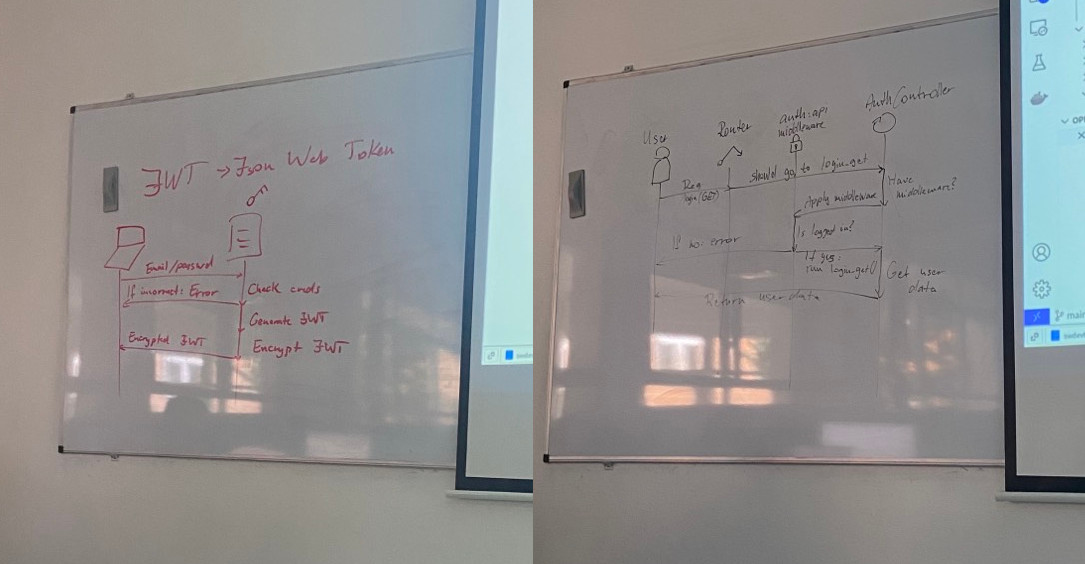 JWT → Json Web Token
Email/password
If incorrect: Error
Check creds
Generate JWT
Encrypted JWT
Encrypt JWT
User
Router
auth:api
middleware
AuthController
Req
login(GET)
should go to login.get
Have
middleware?
Apply middleware
Is logged in?
If no: error
If yes:
run login.get()
Get user
data
Return user data
OPE
main